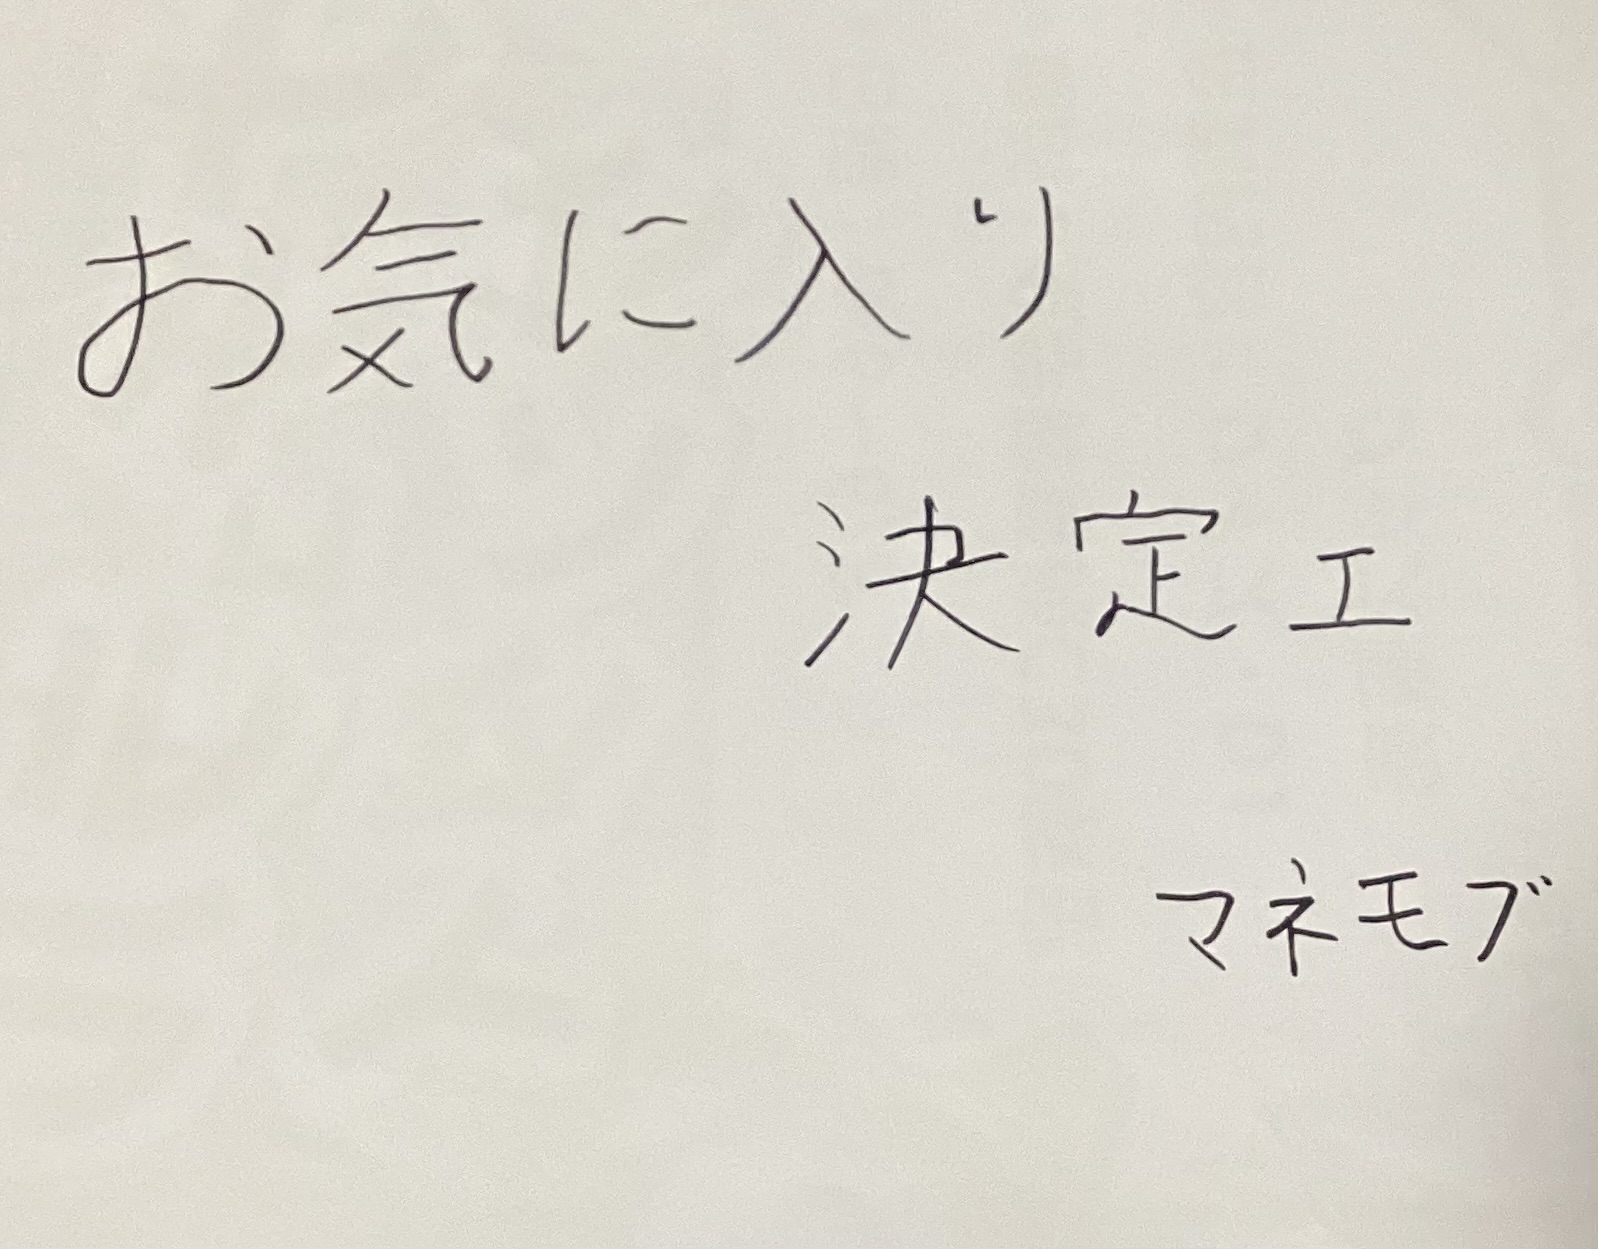 お気に入り
決定エ
マネモブ